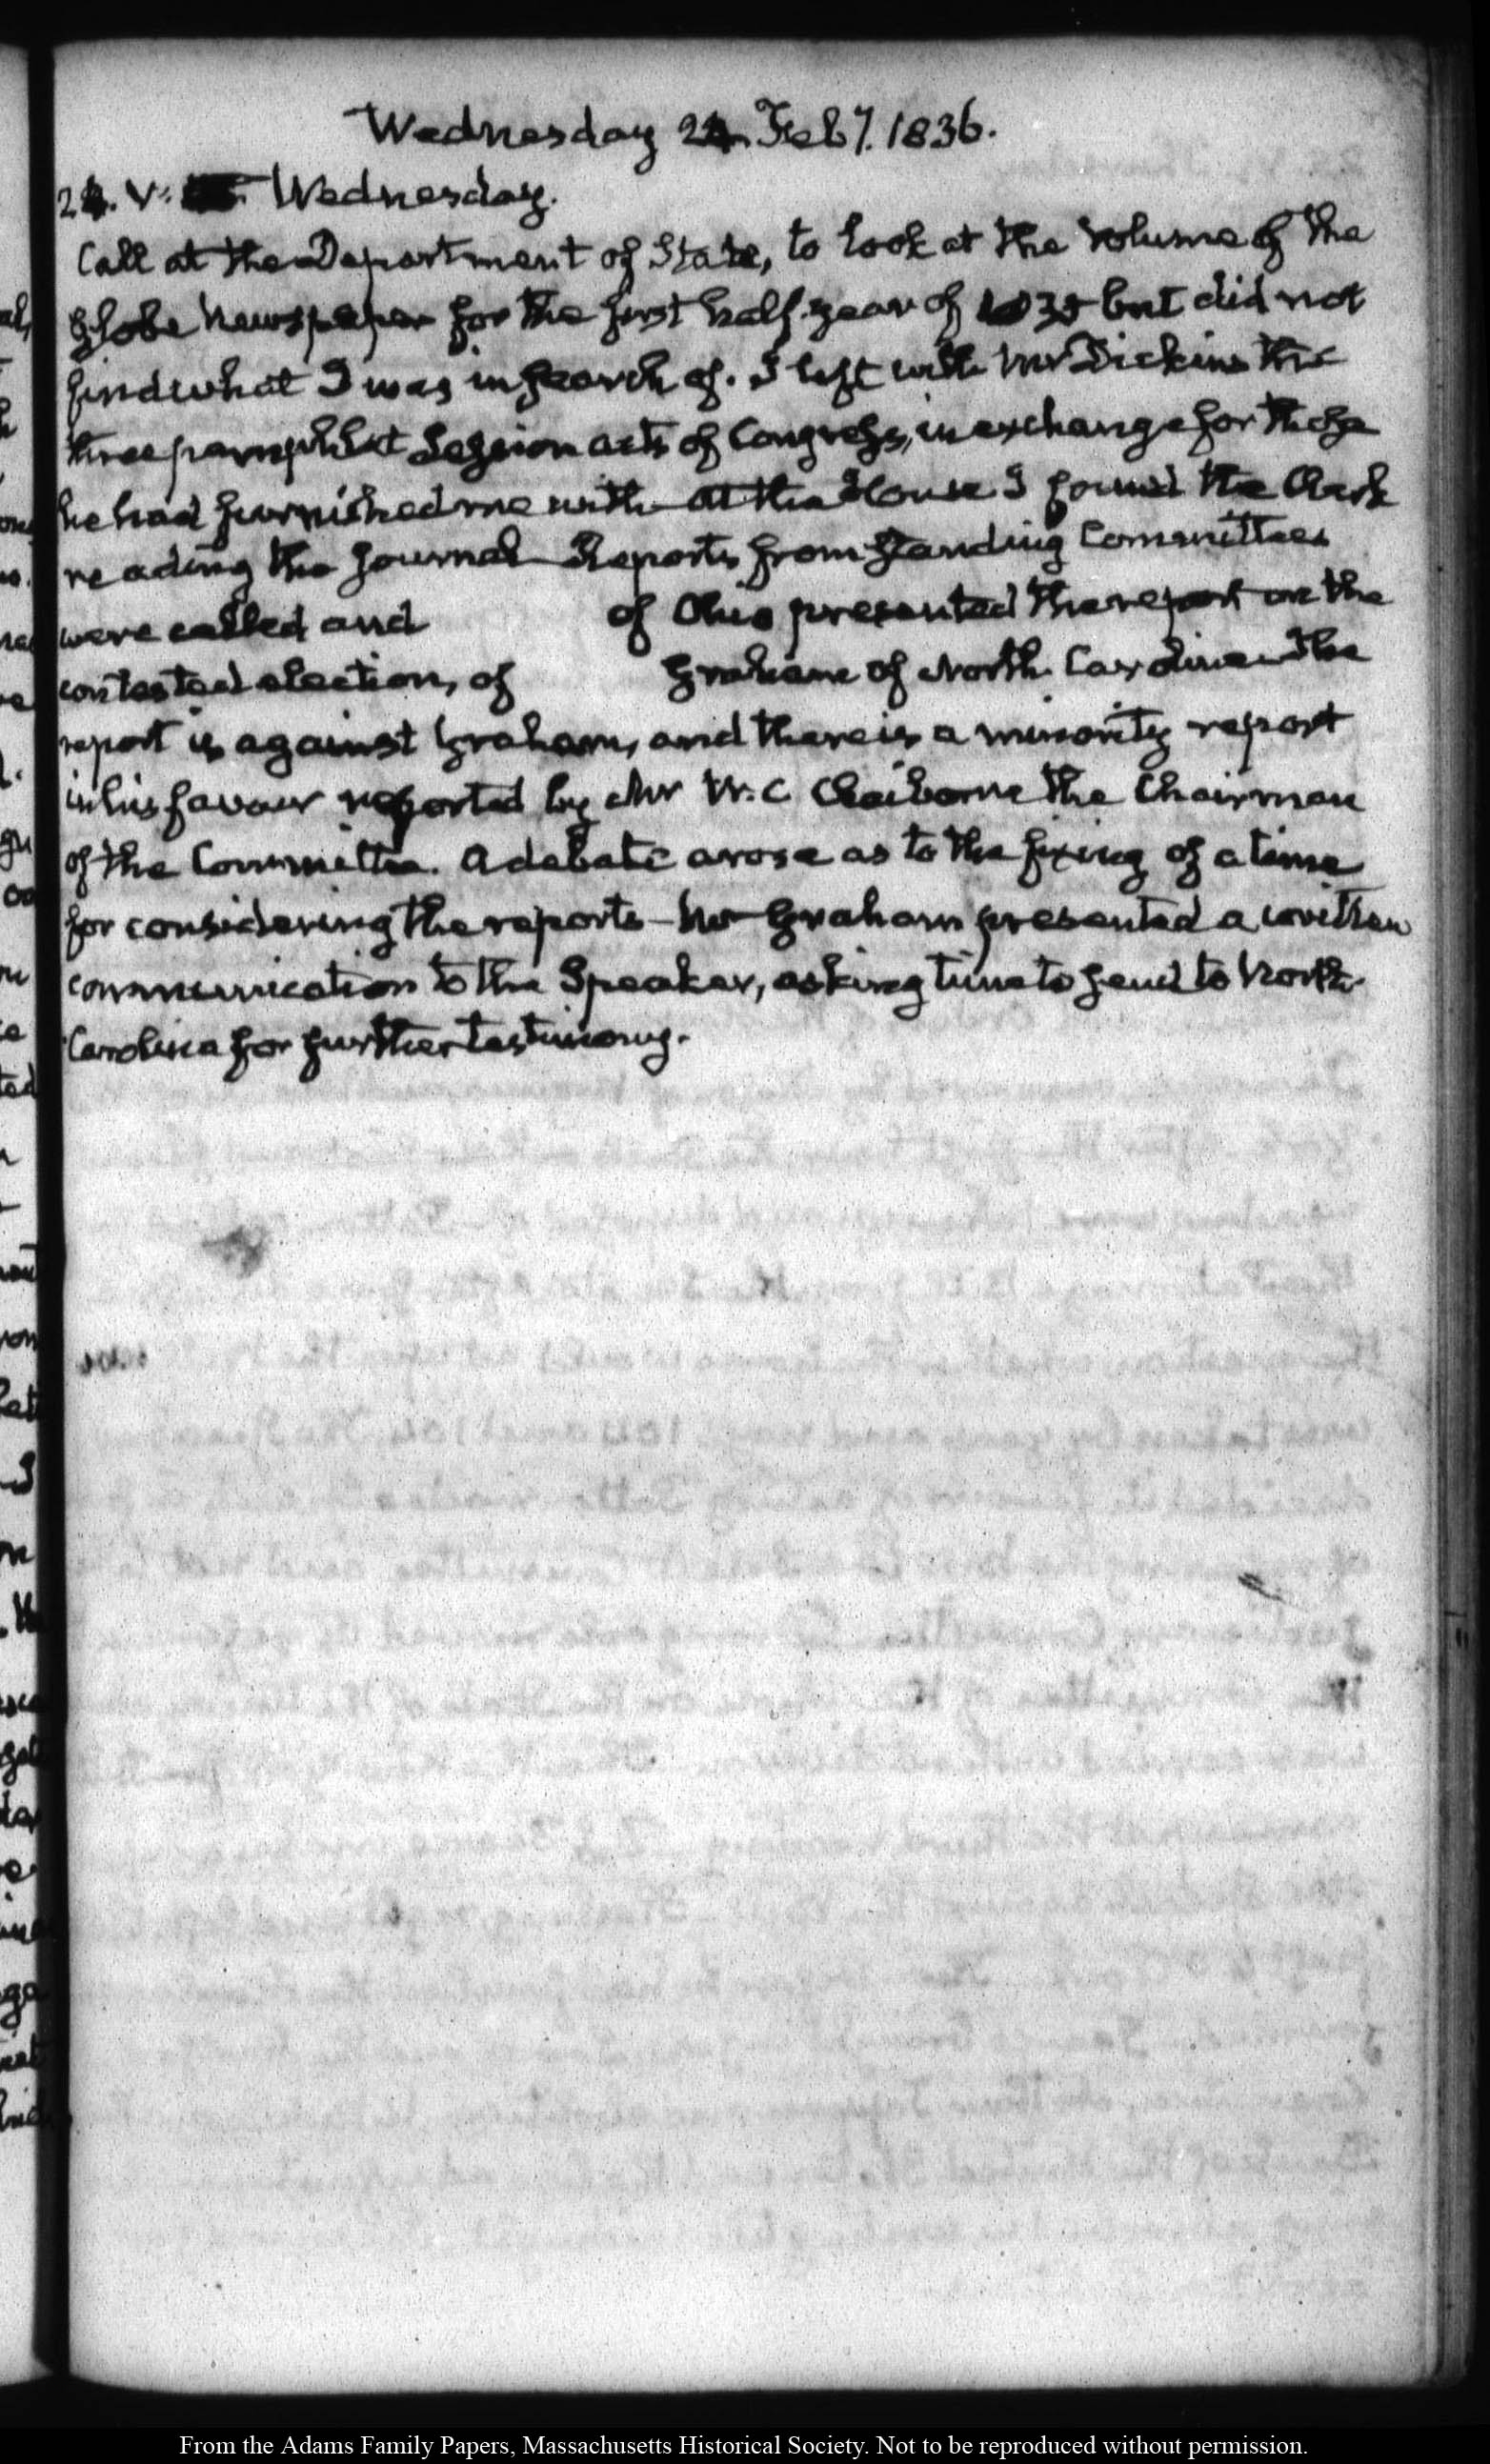 Wednesday 24. Feby. 1836.
24. V: Wednesday.
Call at the Department of State, to look at the volume of the
Globe Newspaper for the first half-year of 1835 but did not
find what I was in search of. I left with Mr Dickins the
three pamphlet Session acts of Congress, in exchange for those
he had furnished me with— At the House I found the Clerk
reading the Journal— Reports from standing Committees
were called and of Ohio presented the report on the
contested election, of Graham of North Carolina— The
report is against Graham, and there is a minority report
in his favour reported by Mr N. C Claiborne the Chairman
of the Committee. A debate arose as to the fixing of a time
for considering the reports— Mr Graham presented a written
communication to the Speaker, asking time to send to North-
Carolina for further testimony.
From the Adams Family Papers, Massachusetts Historical Society. Not to be reproduced without permission.